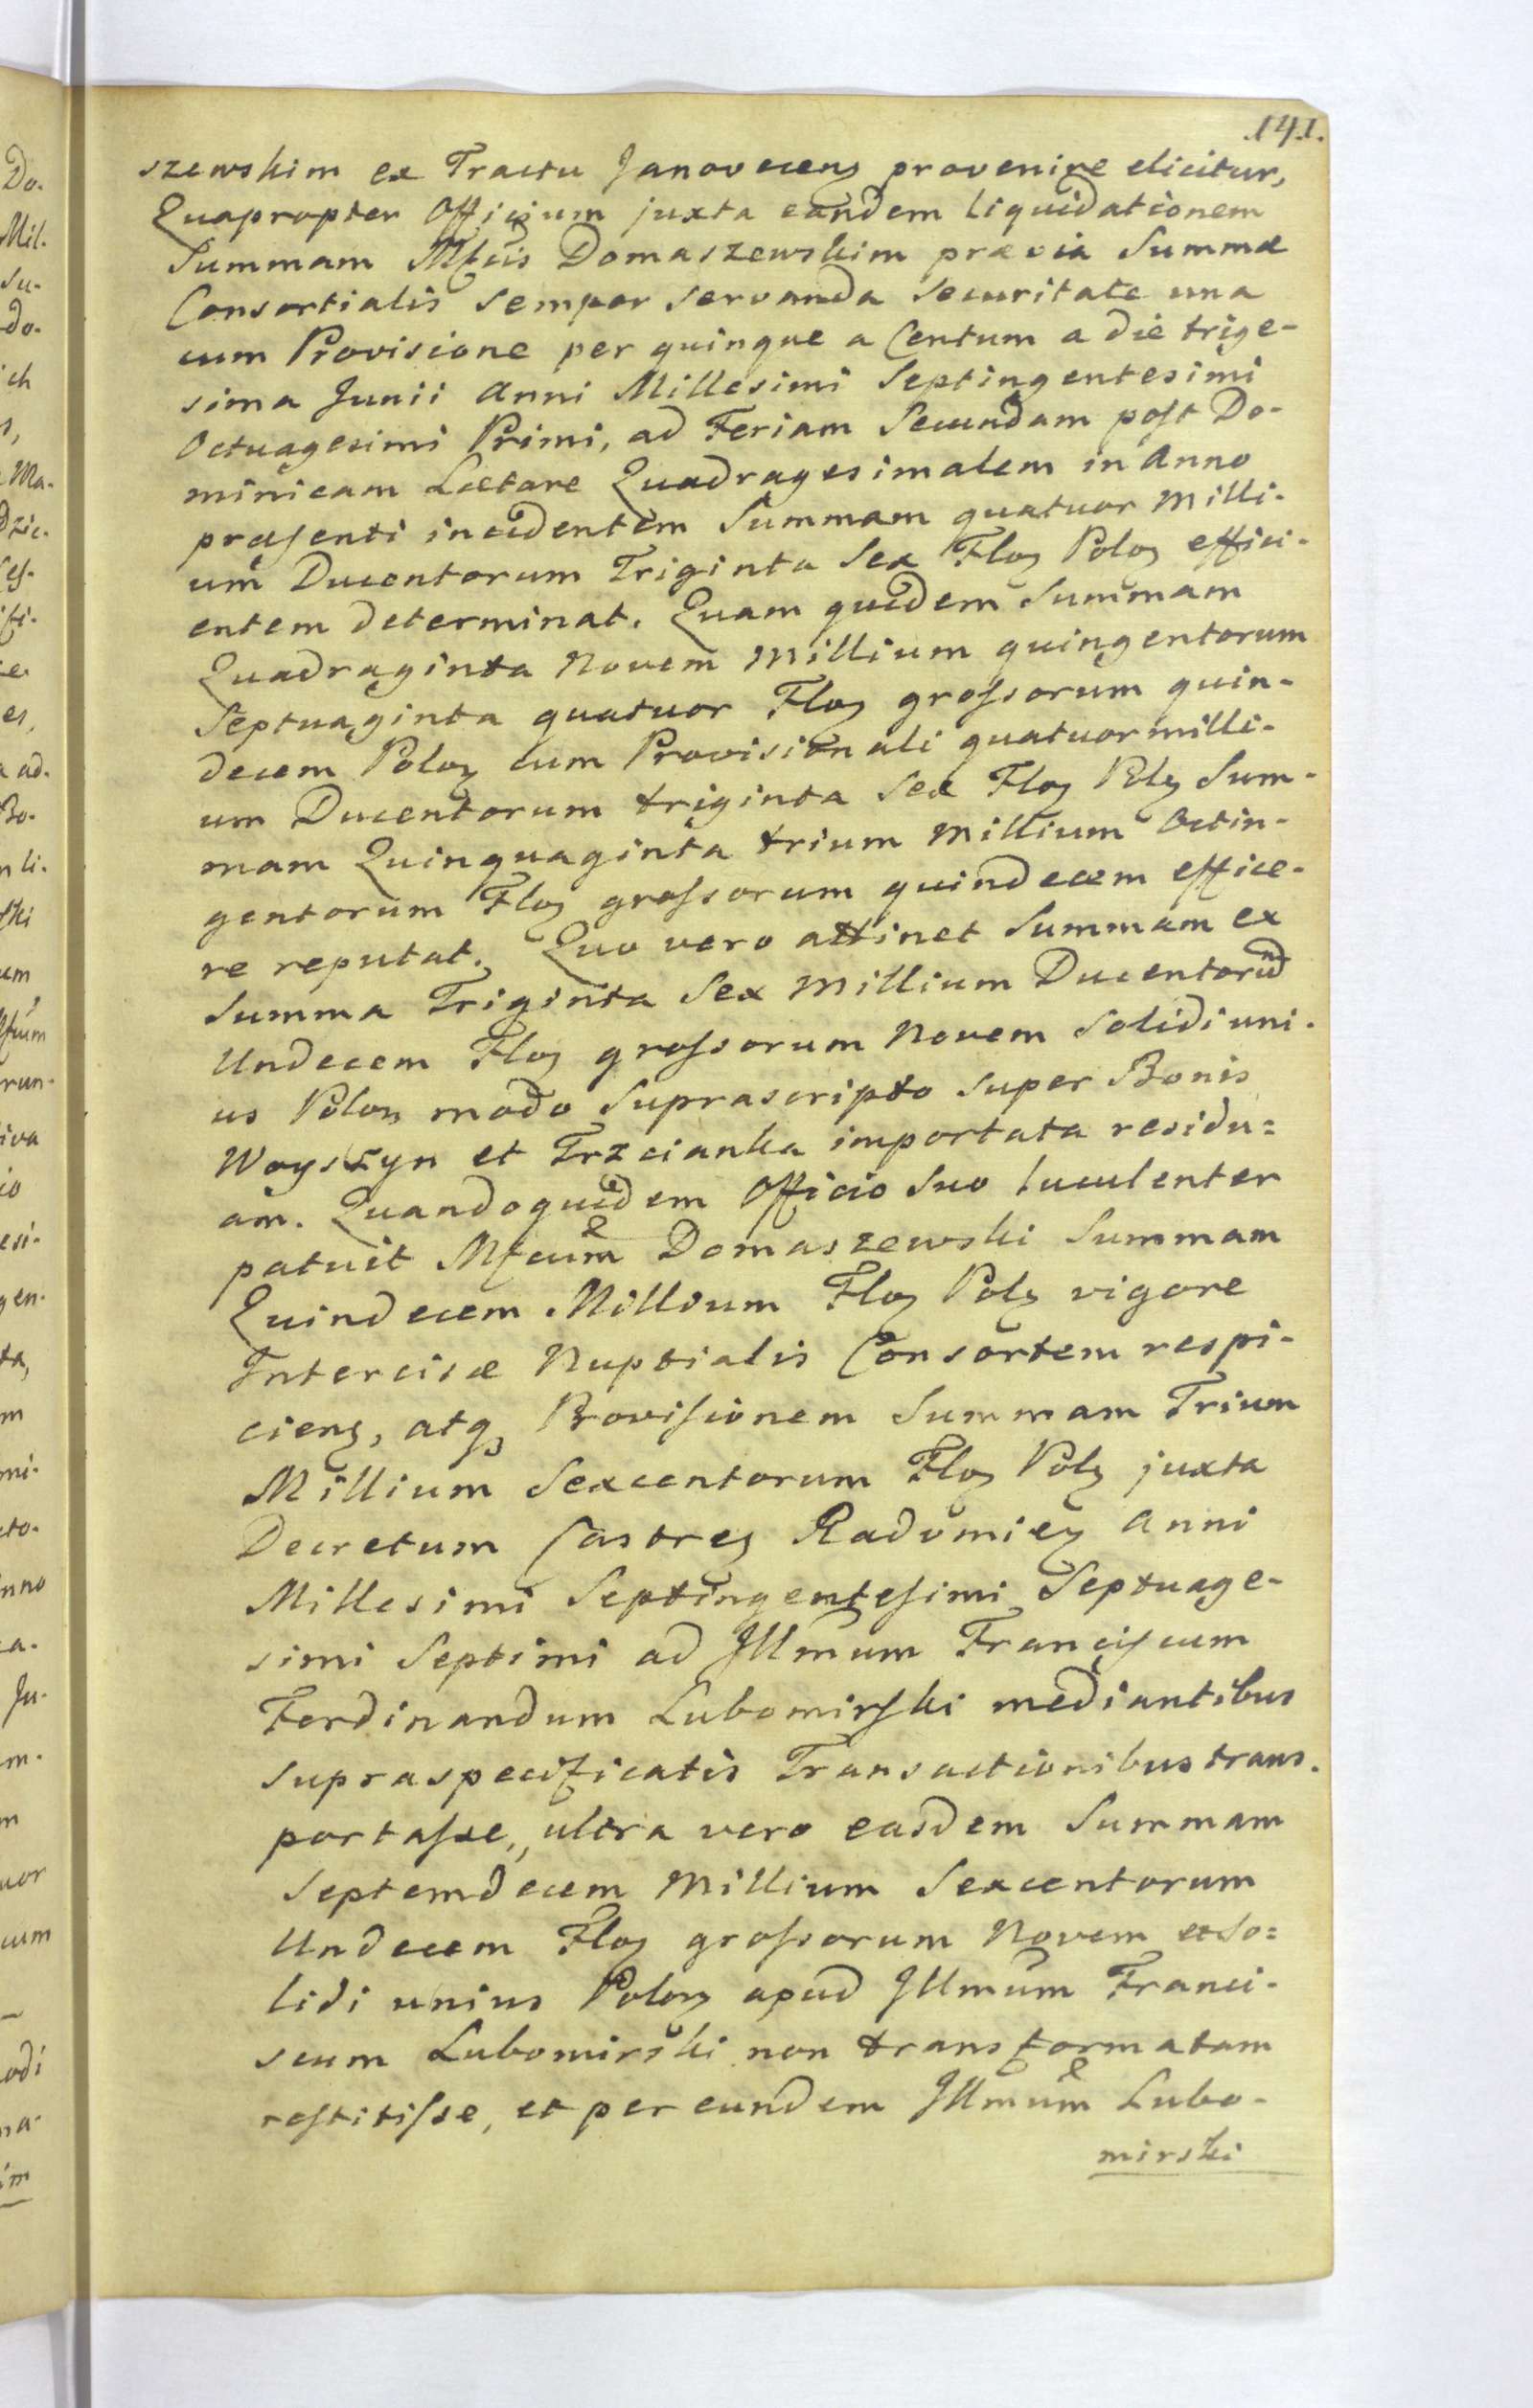 141.
szewskim ex Tractu Janovecens provenire elicitur,
Quapropter Officium juxta eandem liquidationem
Summam Mfcis Domaszewskim prævia Summæ
Consortialis semper servanda securitate una
cum Provisione per quinque a Centum a die trige-
sima Junii Anni Millesimi Septingentesimi
Octuagesimi Primi, ad Feriam Secundam post Do-
minicam Lætare Quadragesimalem in Anno
præsenti incidentem Summam quatuor Milli-
um Ducentorum Triginta Sex Floz Poloz effici-
entem determinat. Quam quidem Summam
Quadraginta Novem Millium quingentorum
Septuaginta quatuor Floz grossorum quin-
decem Poloz cum Provisionali quatuor milli-
um Ducentorum triginta Sex Floz Polz Sum-
mam Quinquaginta trium Millium Octin-
gentorum Floz grossorum quindecem effice-
re reputat. Quo vero attinet Summam ex
Summa Triginta Sex Millium Ducentorum
Undecem Floz grossorum Novem Solidi uni-
us Polon modo Suprascripto Super Bonis
Woyszyn et Trzcianka importata residu=
am. Quandoquidem Officio Suo luculenter
patuit Mfcum Domaszewski Summam
Quindecem Millium Floz Polz vigore
Intercisæ Nuptialis Consortem respi-
ciens, atq Provisionem Summam Trium
Millium Sexcentorum Floz Polz juxta
Decretum Castren Radomien Anni
Millesimi Septingentesimi Septuage-
simi Septimi ad Illmum Franciscum
Ferdinandum Lubomirski mediantibus
supraspecificatis Transactionibus trans-
portasse, ultra vero easdem Summam
Septemdecem Millium Sexcentorum
Undecem Floz grossorum Novem et So=
lidi unius Polon apud Illmum Franci-
scum Lubomirski non transformatam
restitisse, et per eundem Illmum Lubo-
mirski